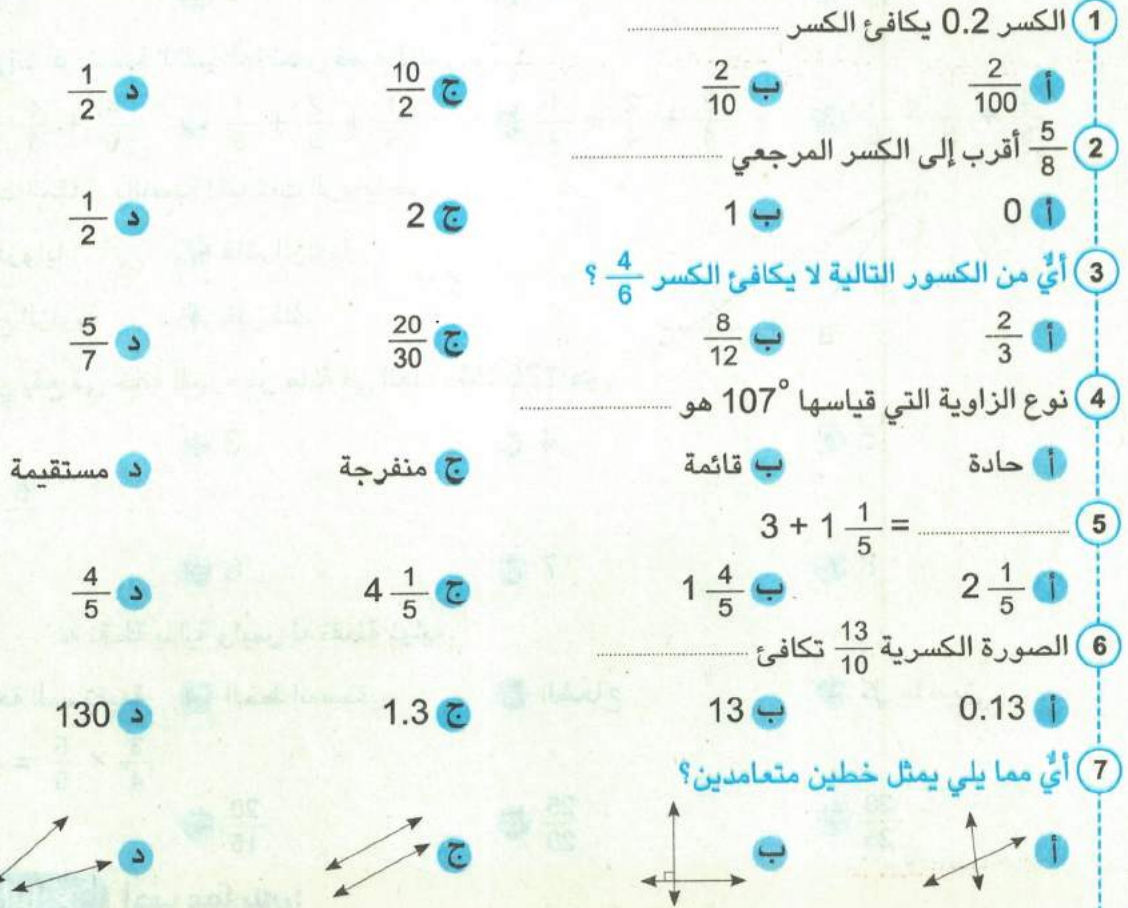 1 الكسر 0.2 يكافئ الكسر ....................
أ 2/100 ب 2/10 ج 10/2 د 1/2
2 5/8 أقرب إلى الكسر المرجعي ....................
أ 0 ب 1 ج 2 د 1/2
3 أيٌّ من الكسور التالية لا يكافئ الكسر 4/6 ؟
أ 2/3 ب 8/12 ج 20/30 د 5/7
4 نوع الزاوية التي قياسها 107° هو ....................
أ حادة ب قائمة ج منفرجة د مستقيمة
5 3 + 1 1/5 = ....................
أ 2 1/5 ب 1 4/5 ج 4 1/5 د 4/5
6 الصورة الكسرية 13/10 تكافئ ....................
أ 0.13 ب 13 ج 1.3 د 130
7 أيٌّ مما يلي يمثل خطين متعامدين؟
أ ب ج د